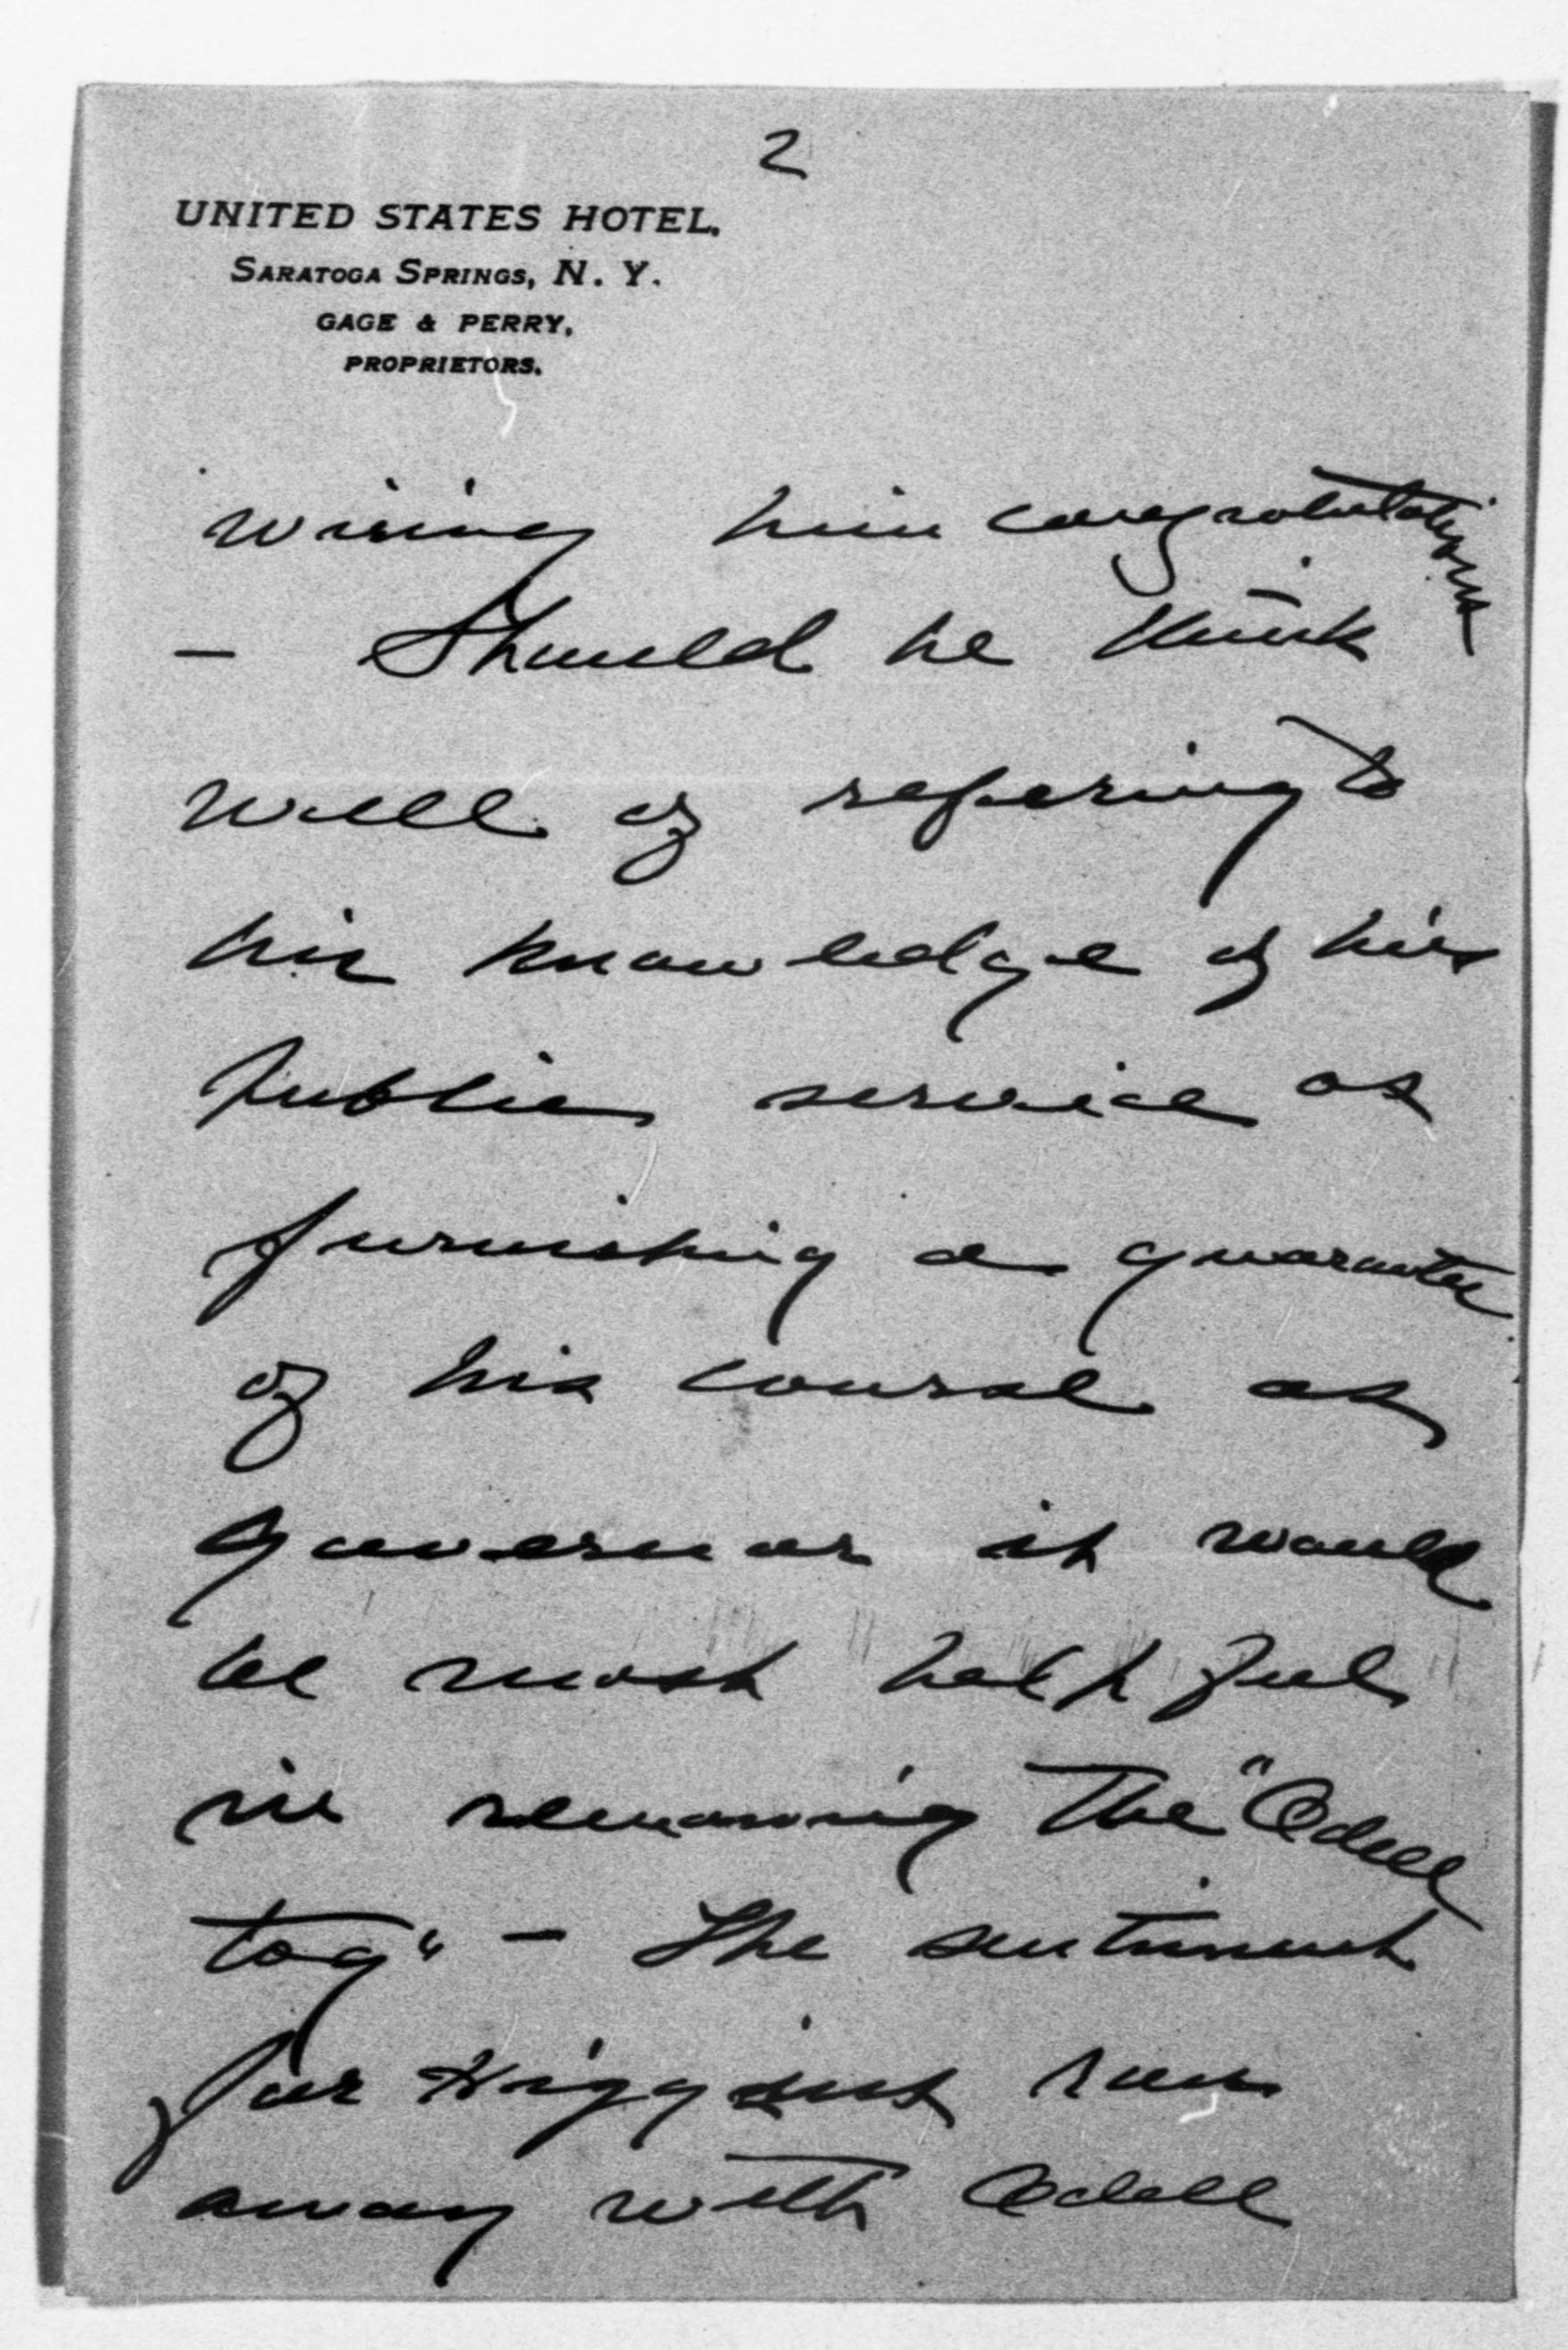 2
UNITED STATES HOTEL.
SARATOGA SPRINGS, N. Y.
GAGE & PERRY,
PROPRIETORS.
wiring him congratulations
– Should he think
well of refering to
his knowledge of his
public service as
furnishing a guarantee
of his course as
governor it would
be most helpful
in removing the "Odell
tag" – The sentiment
for Higgins ran
away with Odell